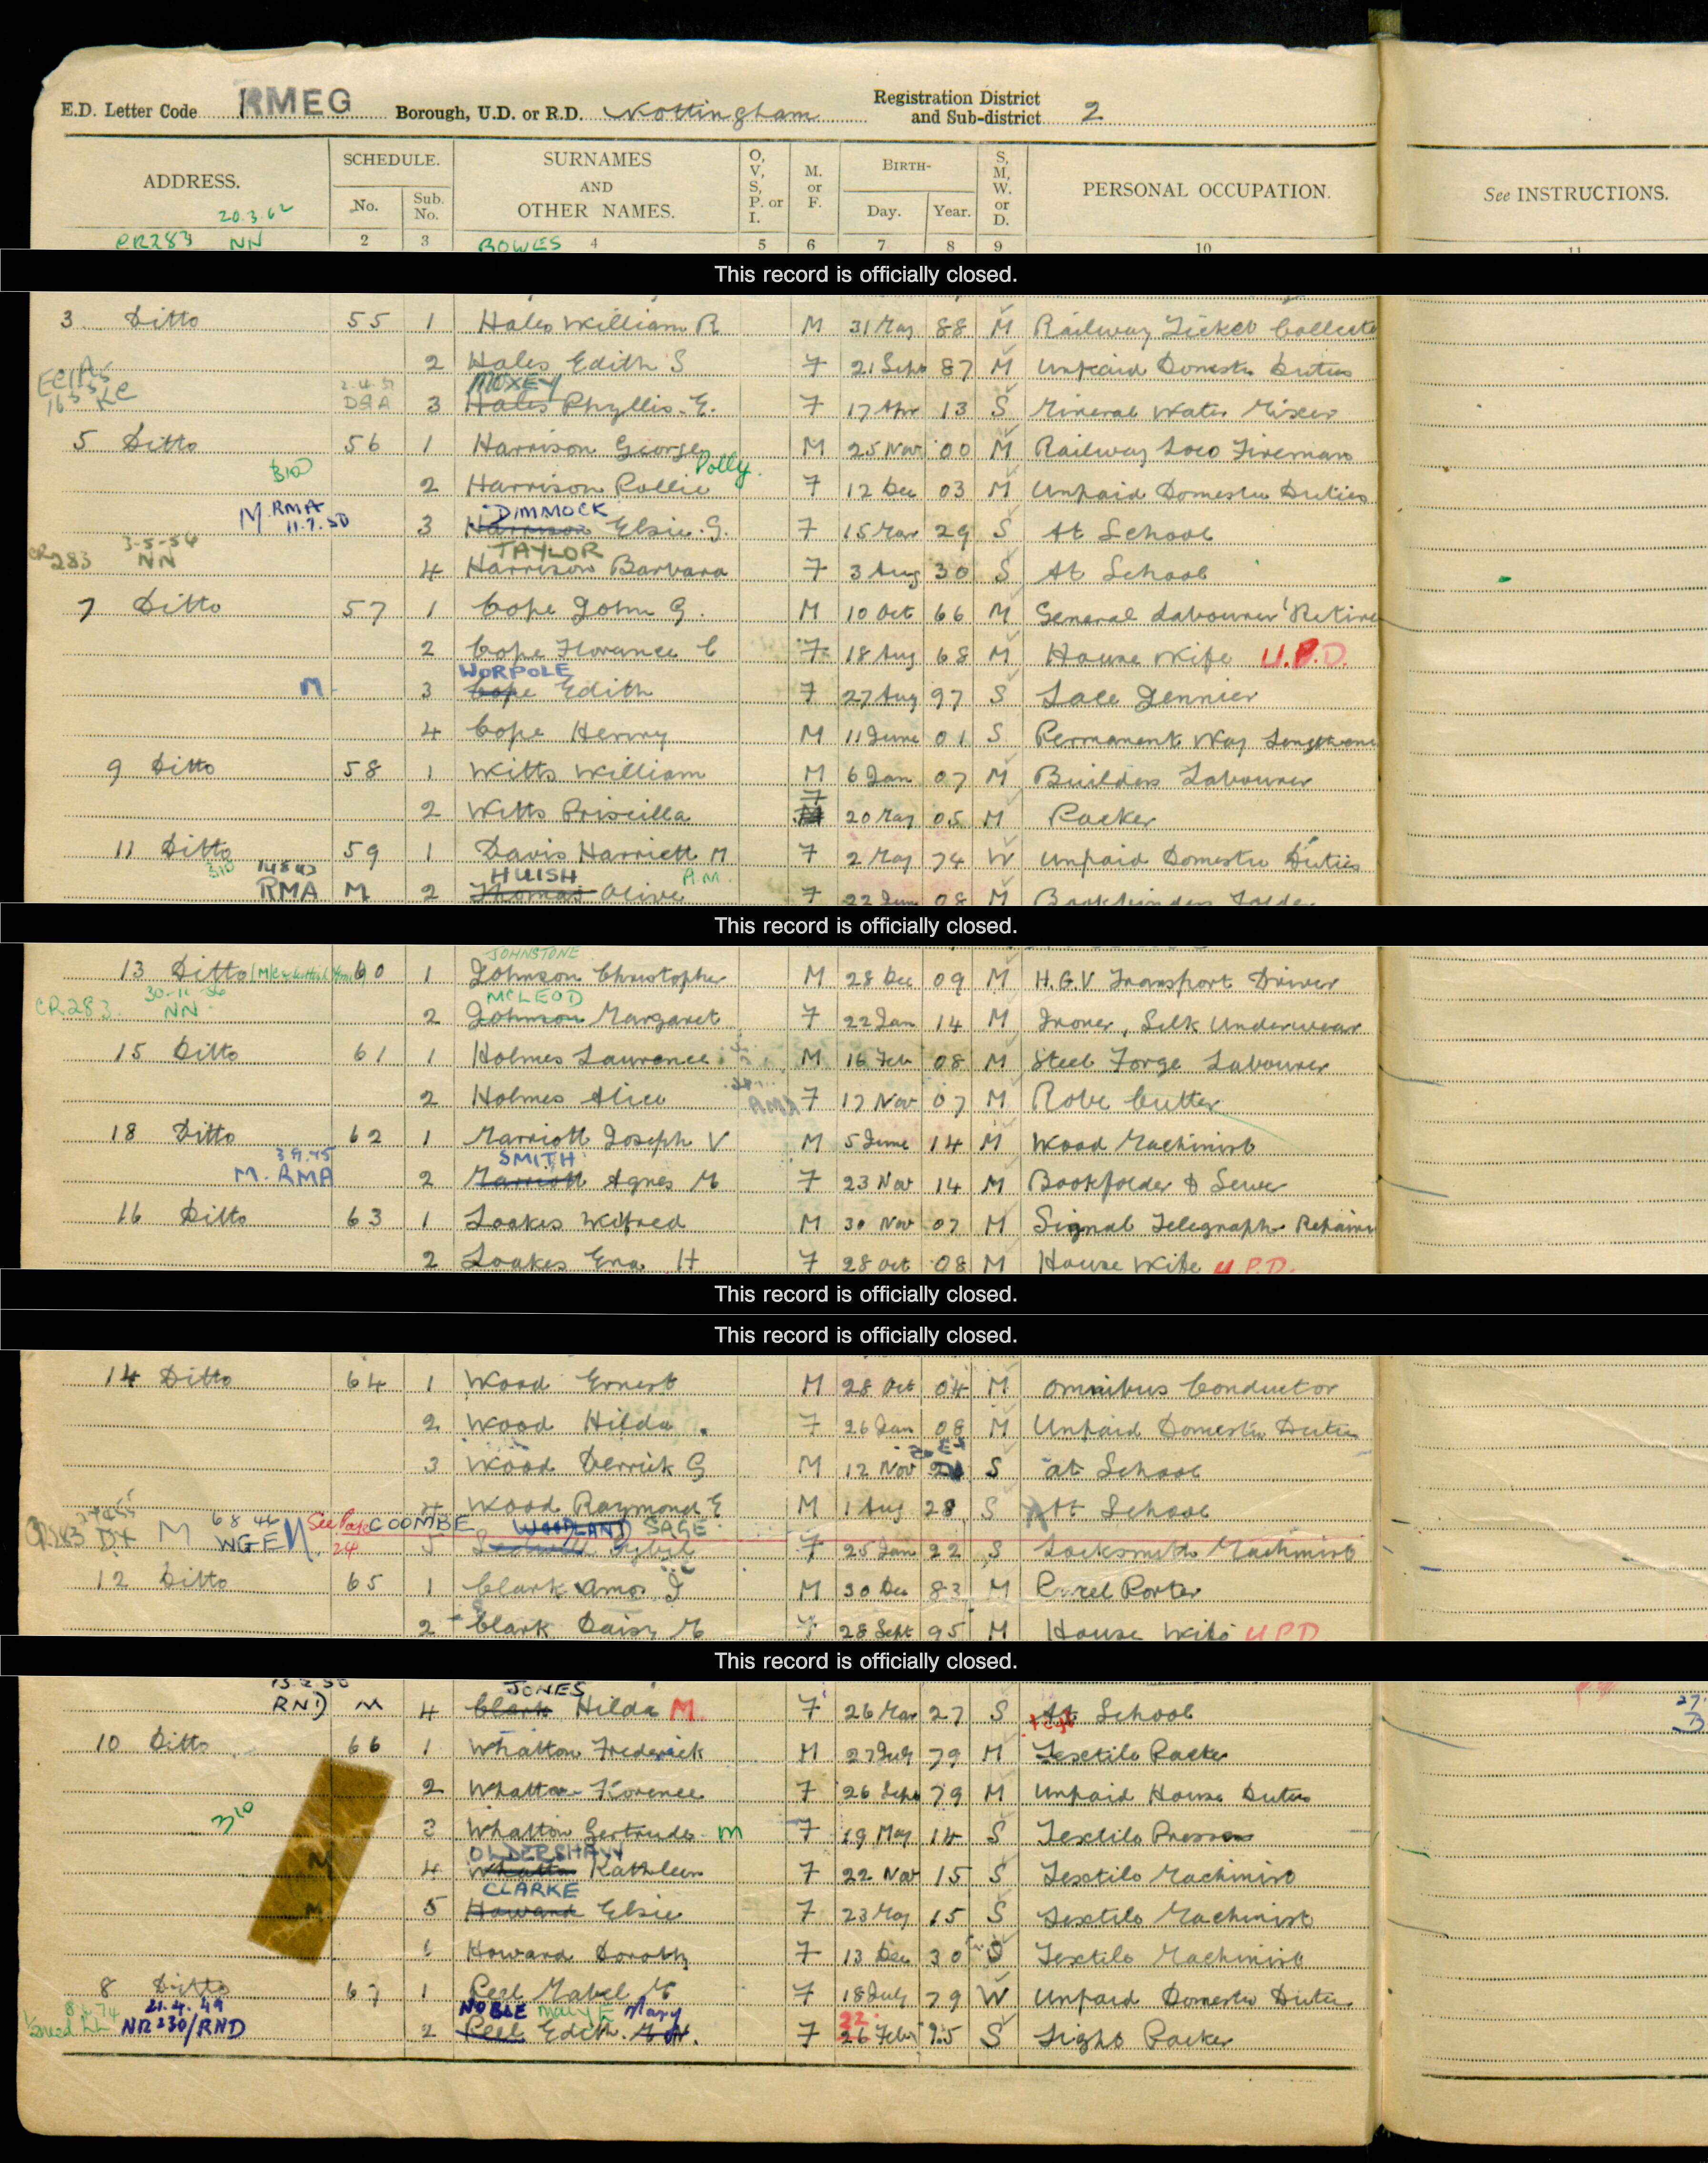 E.D. Letter Code RMEG Borough, U.D. or R.D. Nottingham Registration District and Sub-district 2
ADDRESS. SCHEDULE. No. Sub. No. SURNAMES AND OTHER NAMES. O, V, S, P. or I. M. or F. BIRTH- Day. Year. S, M, W. or D. PERSONAL OCCUPATION. See INSTRUCTIONS.
20.3.62
CR283 NN 2 3 BOWES 4 5 6 7 8 9 10 11
This record is officially closed.
3 Ditto 55 1 Hales William R M 31 May 88 M Railway Ticket Collecto
2 Hales Edith S F 21 Sept 87 M Unpaid Domestic Duties
MOXEY
3 Hales Phyllis E. F 17 Apr 13 S Mineral Water Mixer
5 Ditto 56 1 Harrison George M 25 Nov 00 M Railway Loco Fireman
310 Dolly.
2 Harrison Pollie F 12 Dec 03 M Unpaid Domestic Duties
M RMA 11.7.50 DIMMOCK
3 Harrison Elsie G. F 15 Mar 29 S At School
CR283 3-5-54 NN TAYLOR
4 Harrison Barbara F 3 Aug 30 S At School
7 Ditto 57 1 Cope John G. M 10 Oct 66 M General Labourer Retire
2 Cope Florance C F 18 Aug 68 M House Wife U.P.D.
WORPOLE
M 3 Cope Edith F 27 Aug 97 S Lace Jennier
4 Cope Henry M 11 June 01 S Permanent Way
9 Ditto 58 1 Witts William M 6 Jan 07 M Builders Labourer
2 Witts Priscilla F 20 May 05 M Packer
11 Ditto 59 1 Davis Harriett M F 2 May 74 W Unpaid Domestic Duties
310 HUISH A.M.
RMA M 2 Thomas Olive F 22 June 08 M Bookbinders Folder
This record is officially closed.
JOHNSTONE
13 Ditto 60 1 Johnson Christopher M 28 Dec 09 M H.G.V Transport Driver
CR283 30-11-56 NN MCLEOD
2 Johnson Margaret F 22 Jan 14 M Ironer, Silk Underwear
15 Ditto 61 1 Holmes Laurence M 16 Feb 08 M Steel Forge Labourer
2 Holmes Alice RMA F 17 Nov 07 M Robe Cutter
18 Ditto 62 1 Marriott Joseph V M 5 June 14 M Wood Machinist
M. RMA 3.9.45 SMITH
2 Marriott Agnes M F 23 Nov 14 M Bookfolder & Sewer
16 Ditto 63 1 Loakes Wilfred M 30 Nov 07 M Signal Telegraph Repairer
2 Loakes Ena H F 28 Oct 08 M House Wife U.P.D.
This record is officially closed.
This record is officially closed.
14 Ditto 64 1 Wood Ernest M 28 Oct 04 M Omnibus Conductor
2 Wood Hilda F 26 Jan 08 M Unpaid Domestic Duties
3 Wood Derrick G M 12 Nov S at School
4 Wood Raymond E M 1 Aug 28 S At School
CR283 M 6 8 46 WGE See Page 24 COOMBE WOODLAND SAGE
5 Sybil F 25 Jan 22 S Locksmith Machinist
12 Ditto 65 1 Clark Amos J M 30 Dec 83 M Parcel Porter
2 Clark Daisy M F 28 Sept 95 M House Wife U.P.D
This record is officially closed.
JONES
RND M 4 Clark Hilda M. F 26 Mar 27 S At School
10 Ditto 66 1 Whatton Frederick M 27 July 79 M Textile Packer
2 Whatton Florence F 26 Sept 79 M Unpaid House Duties
310
3 Whatton Gertrude M F 19 May 14 S Textile Presser
OLDERSHAW
M 4 Whatton Kathleen F 22 Nov 15 S Textile Machinist
CLARKE
M 5 Howard Elsie F 23 May 15 S Textile Machinist
6 Howard Dorothy F 13 Dec 30 S Textile Machinist
8 Ditto 67 1 Peel Mabel M F 18 July 79 W Unpaid Domestic Duties
21.4.49 NOBLE Mary E Mary 22
NR230/RND 2 Peel Edith M A. F 26 Feb S Light Packer